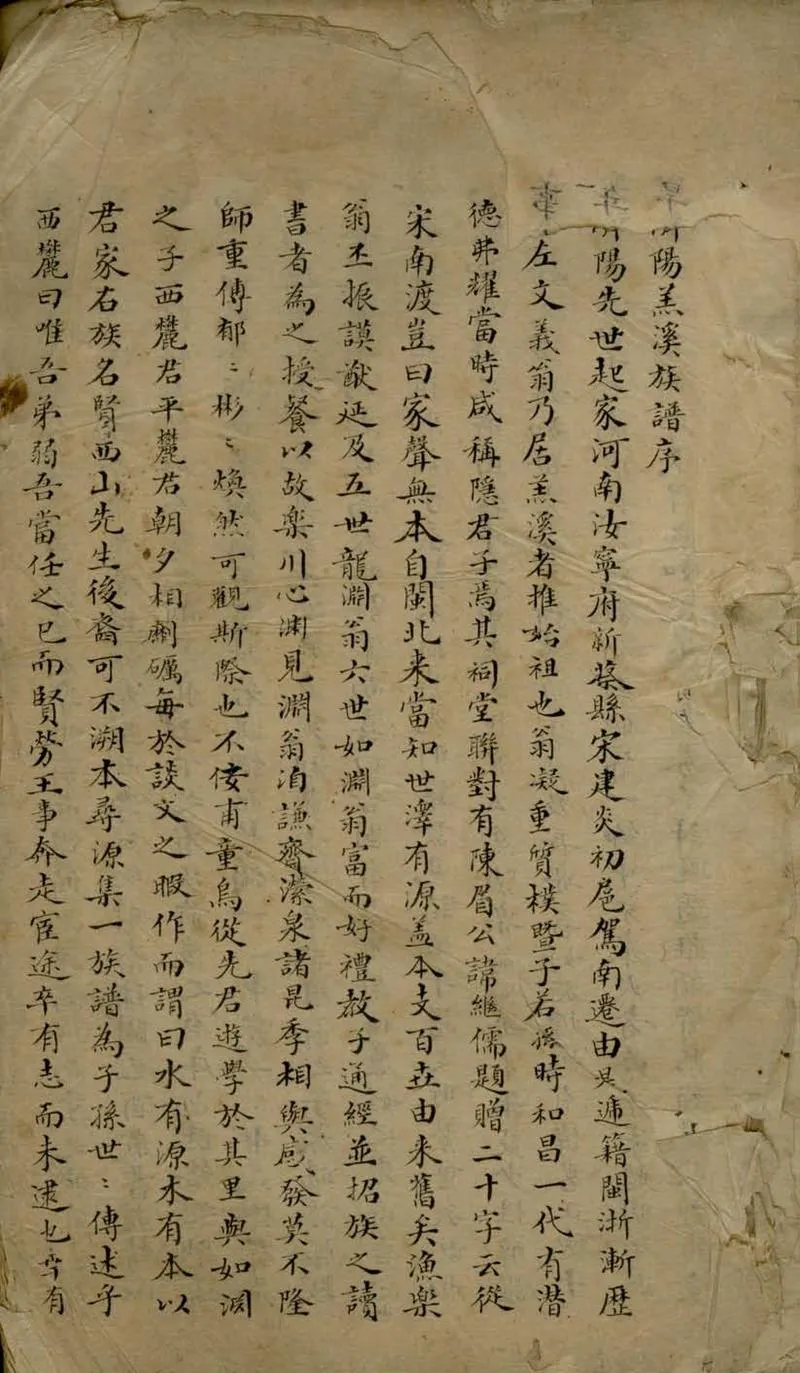 陽羔溪族譜序
陽先世起家河南汝寧府新蔡縣宋建炎初扈駕南遷由吳遞籍閩浙漸歷
左文義翁乃居羔溪者推始祖也翁凝重質樸暨子若孫時和昌一代有潜
德弗耀當時咸稱隱君子焉其祠堂聯對有陳眉公諱繼儒題贈二十字云從
宋南渡豈曰家聲無本自閩北来當知世澤有源盖本支百世由来舊矣漁樂
翁丕振謨猷延及五世龍淵翁六世如淵翁富而好禮教子通經並招族之讀
書者為之授餐以故楽川心渊見淵翁洎謙齋濚泉諸昆季相與感發莫不隆
師重傅郁〻彬〻煥然可觀斯際也不佞甫童烏從先君遊學於其里與如淵
之子西麓君平麓君朝夕相劘礪每於談文之暇作而謂曰水有源木有本以
君家右族名賢西山先生後裔可不溯本尋源集一族譜為子孫世〻傳述乎
西麓曰唯吾弟弱吾當任之已而賢劳王事奔走宦途卒有志而未逮也幸有